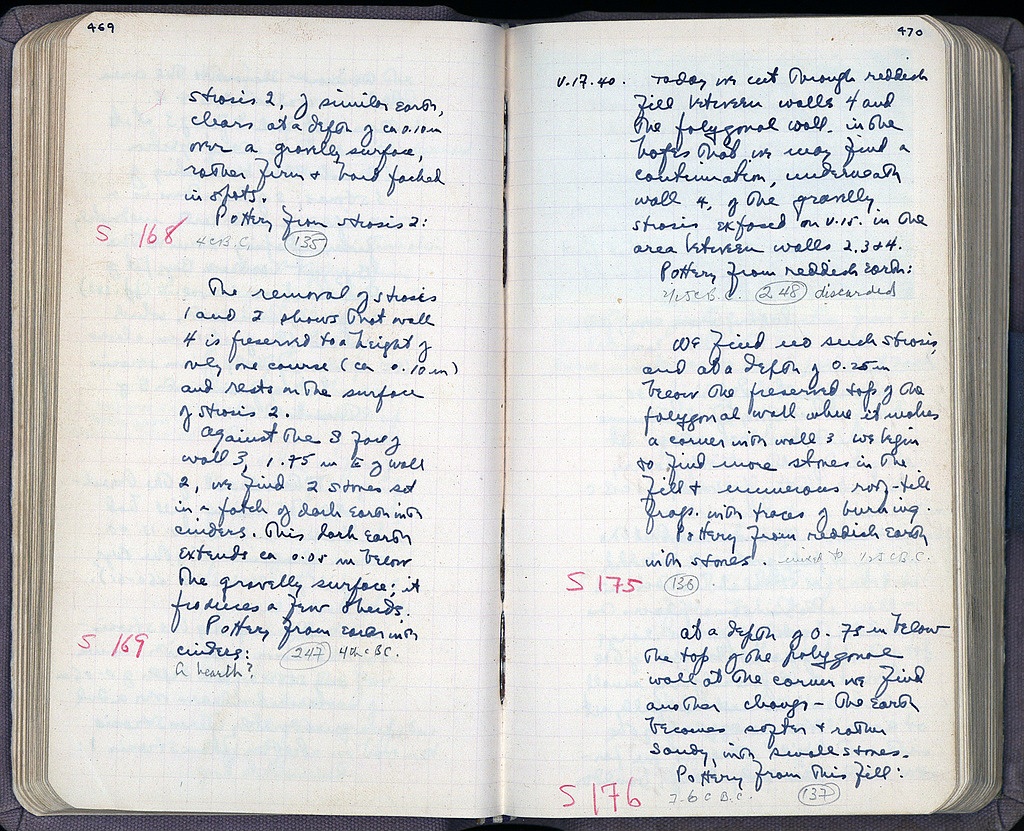 469
strosis 2, of similar earth,
clears at a depth of ca 0.10 m
over a gravelly surface,
rather firm + hard packed
in spots.
Pottery from strosis 2:
S 168
4 c B.C. 135
The removal of strosis
1 and 2 shows that wall
4 is preserved to a height of
only one course (ca 0.10 m)
and rests on the surface
of strosis 2.
Against the S face of
wall 3, 1.75 m E of wall
2, we find 2 stones set
in a patch of dark earth with
cinders. This dark earth
extends ca 0.05 m below
the gravelly surface; it
produces a few sherds.
Pottery from earth with
S 169
cinders: 247 4th c BC.
A hearth?
470
V.17.40. Today we cut through reddish
fill between walls 4 and
the polygonal wall in the
hopes that we may find a
continuation, underneath
wall 4, of the gravelly
strosis exposed on V.15. in the
area between walls 2.3+4.
Pottery from reddish earth:
c B.C. 248 discarded
We find no such strosis,
and at a depth of 0.25 m
below the preserved top of the
polygonal wall where it makes
a corner with wall 3 we begin
to find more stones in the
fill + numerous roof-tile
frags. with traces of burning.
Pottery from reddish earth
with stones. to c B.C.
S 175 136
At a depth of 0.75 m below
the top of the polygonal
wall at the corner we find
another change – the earth
becomes softer + rather
sandy, with small stones.
Pottery from this fill:
S 176 7-6 c B.C. 137